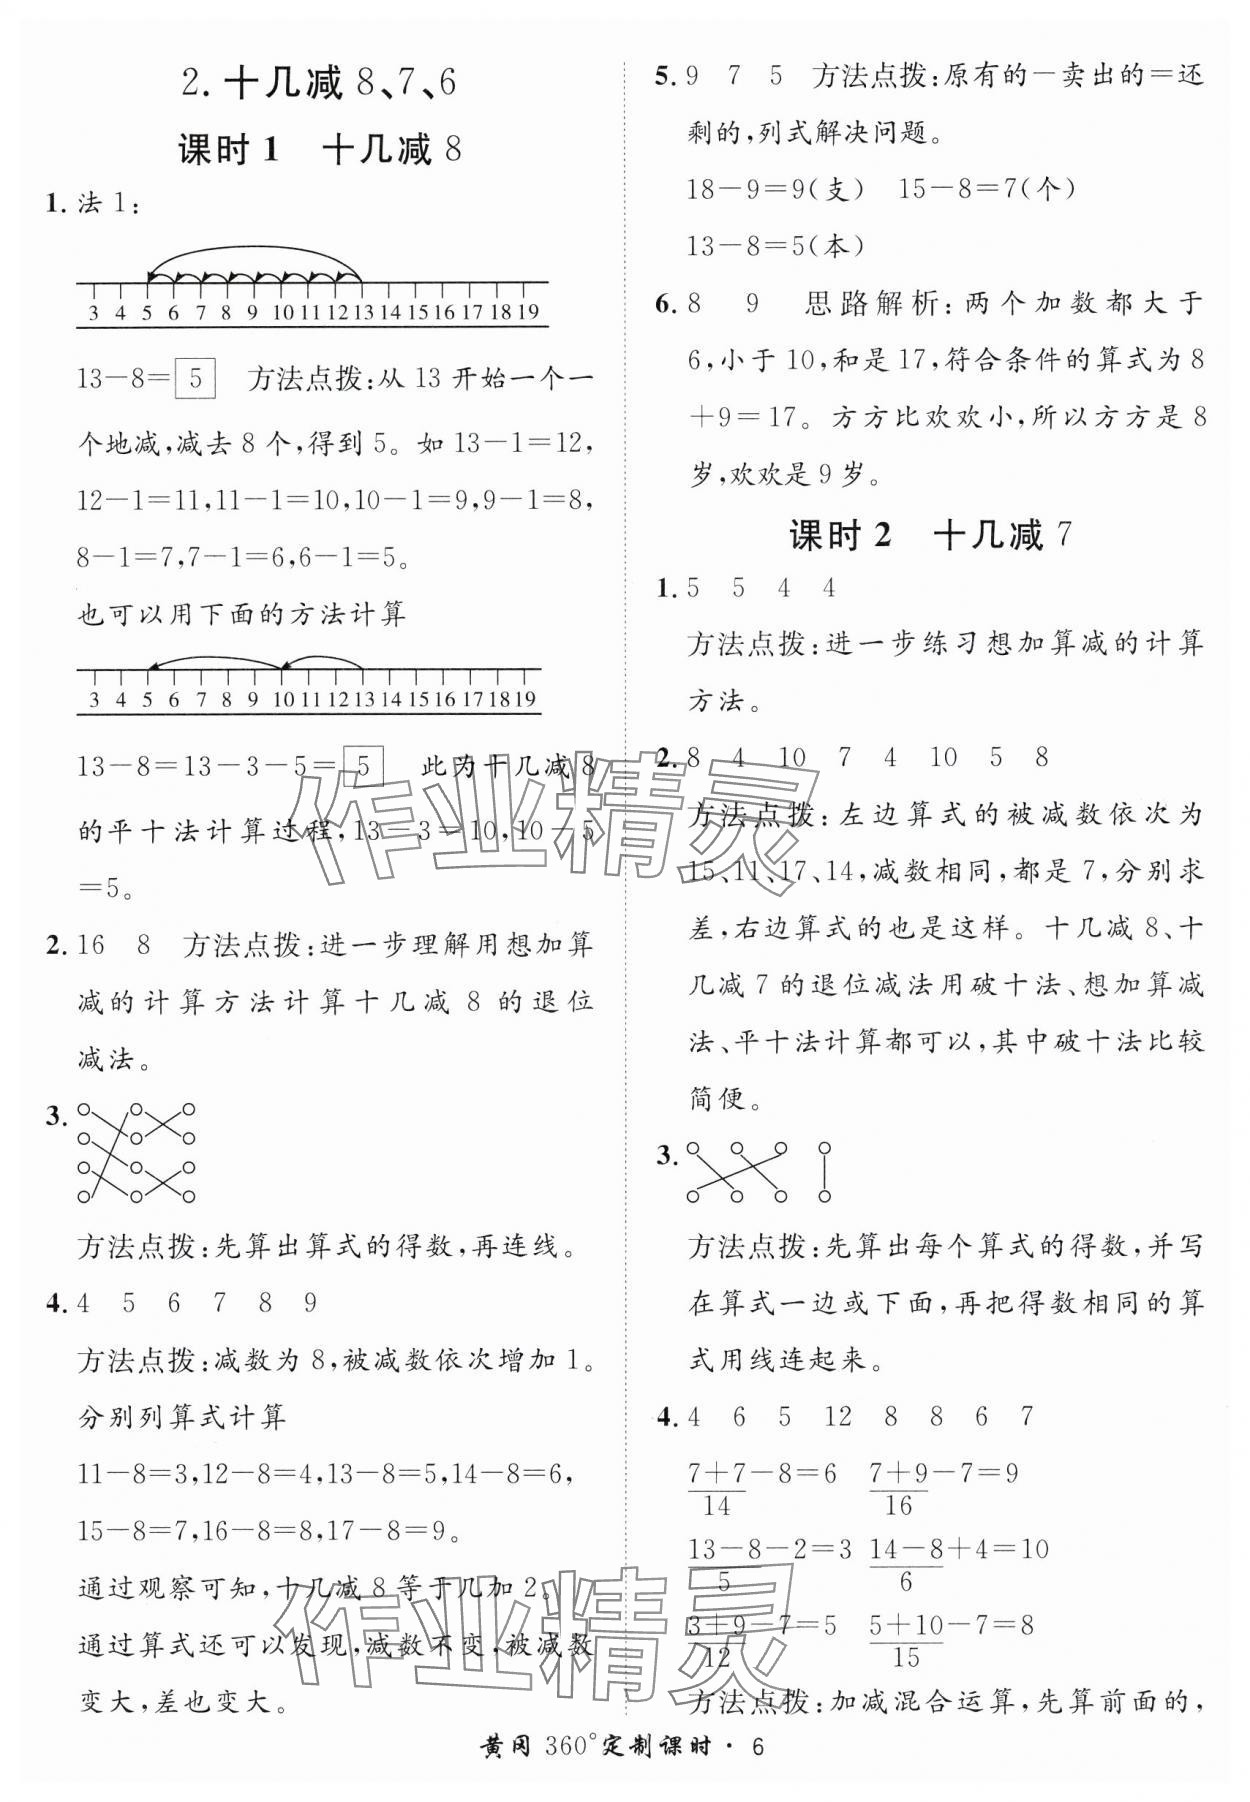 2. 十几减 8、7、6
课时 1 十几减 8
1. 法 1：
3 4 5 6 7 8 9 10 11 12 13 14 15 16 17 18 19
13－8＝5 方法点拨：从 13 开始一个一
个地减，减去 8 个，得到 5。如 13－1＝12，
12－1＝11，11－1＝10，10－1＝9，9－1＝8，
8－1＝7，7－1＝6，6－1＝5。
也可以用下面的方法计算
3 4 5 6 7 8 9 10 11 12 13 14 15 16 17 18 19
13－8＝13－3－5＝5 此为十几减 8
的平十法计算过程，13－3＝10，10－5
＝5。
2. 16 8 方法点拨：进一步理解用想加算
减的计算方法计算十几减 8 的退位
减法。
3.
方法点拨：先算出算式的得数，再连线。
4. 4 5 6 7 8 9
方法点拨：减数为 8，被减数依次增加 1。
分别列算式计算
11－8＝3，12－8＝4，13－8＝5，14－8＝6，
15－8＝7，16－8＝8，17－8＝9。
通过观察可知，十几减 8 等于几加 2。
通过算式还可以发现，减数不变，被减数
变大，差也变大。
5. 9 7 5 方法点拨：原有的－卖出的＝还
剩的，列式解决问题。
18－9＝9（支） 15－8＝7（个）
13－8＝5（本）
6. 8 9 思路解析：两个加数都大于
6，小于 10，和是 17，符合条件的算式为 8
＋9＝17。方方比欢欢小，所以方方是 8
岁，欢欢是 9 岁。
课时 2 十几减 7
1. 5 5 4 4
方法点拨：进一步练习想加算减的计算
方法。
2. 8 4 10 7 4 10 5 8
方法点拨：左边算式的被减数依次为
15、11、17、14，减数相同，都是 7，分别求
差，右边算式的也是这样。十几减 8、十
几减 7 的退位减法用破十法、想加算减
法、平十法计算都可以，其中破十法比较
简便。
3.
方法点拨：先算出每个算式的得数，并写
在算式一边或下面，再把得数相同的算
式用线连起来。
4. 4 6 5 12 8 8 6 7
7＋7－8＝6 7＋9－7＝9
14 16
13－8－2＝3 14－8＋4＝10
5 6
3＋9－7＝5 5＋10－7＝8
12 15
方法点拨：加减混合运算，先算前面的，
黄冈 360°定制课时·6
作业精灵
作业精灵